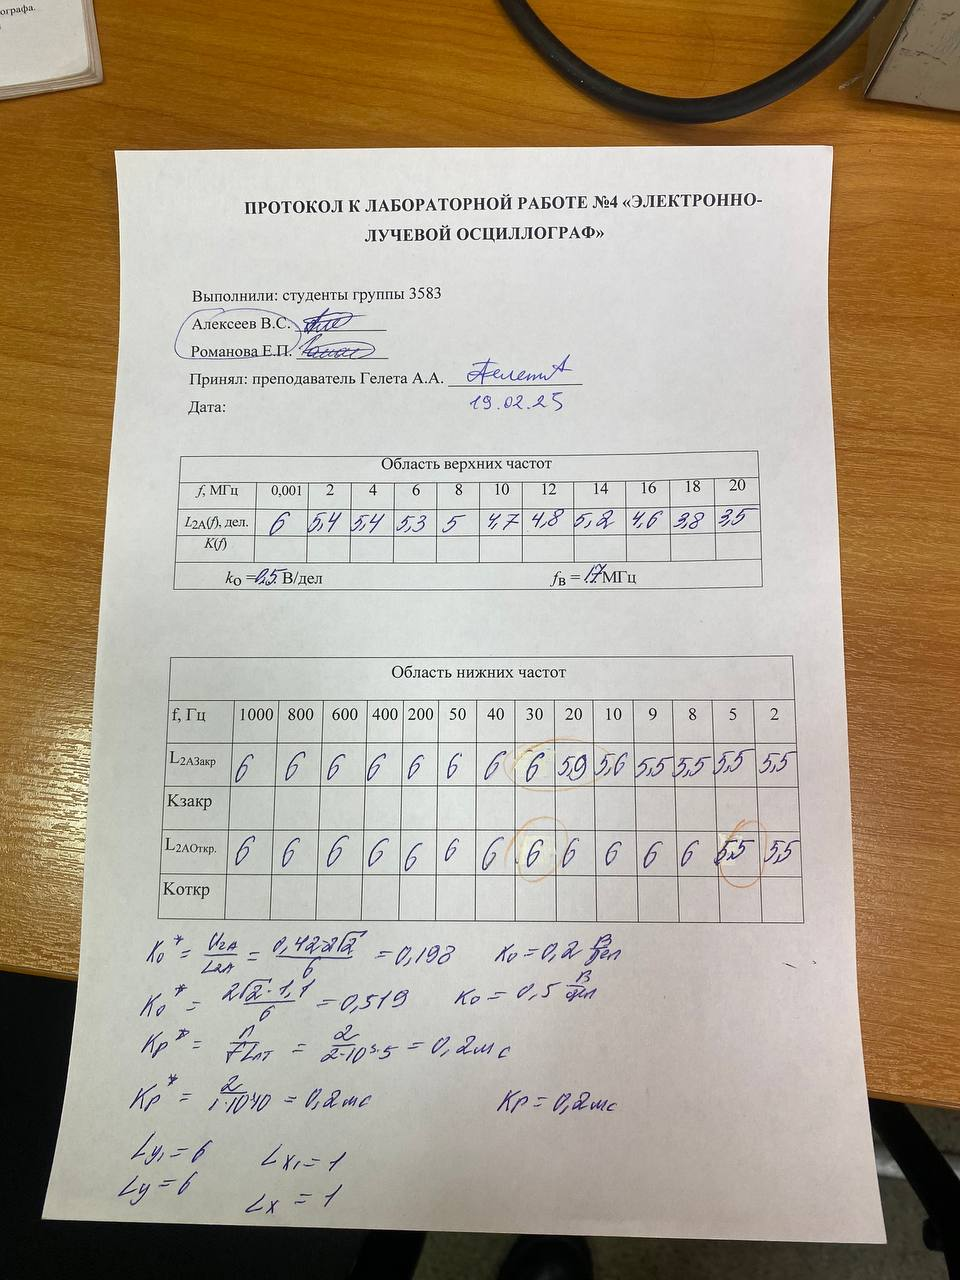 ографа.
ПРОТОКОЛ К ЛАБОРАТОРНОЙ РАБОТЕ №4 «ЭЛЕКТРОННО-
ЛУЧЕВОЙ ОСЦИЛЛОГРАФ»
Выполнили: студенты группы 3583
Алексеев В.С.
Романова Е.П.
Принял: преподаватель Гелета А.А.
Дата: 19.02.25
Область верхних частот
f, МГц 0,001 2 4 6 8 10 12 14 16 18 20
L2A(f), дел. 6 5,4 5,4 5,3 5 4,7 4,8 5,2 4,6 3,8 3,5
K(f)
kо = 0,5 В/дел fв = 17 МГц
Область нижних частот
f, Гц 1000 800 600 400 200 50 40 30 20 10 9 8 5 2
L2АЗакр 6 6 6 6 6 6 6 6 5,9 5,6 5,5 5,5 5,5 5,5
Kзакр
L2АОткр. 6 6 6 6 6 6 6 6 6 6 6 6 5,5 5,5
Kоткр
Ko* = U2A/L2A = 0,42·2√2/6 = 0,198 Ko = 0,2 В/дел
Ko* = 2√2·1,1/6 = 0,519 Ko = 0,5 В/дел
Kp* = n/fLnT = 2/2·10³·5 = 0,2мс
Kp* = 2/1·10³·10 = 0,2мс Kp = 0,2мс
Ly1 = 6 Lx1 = 1
Ly = 6 Lx = 1